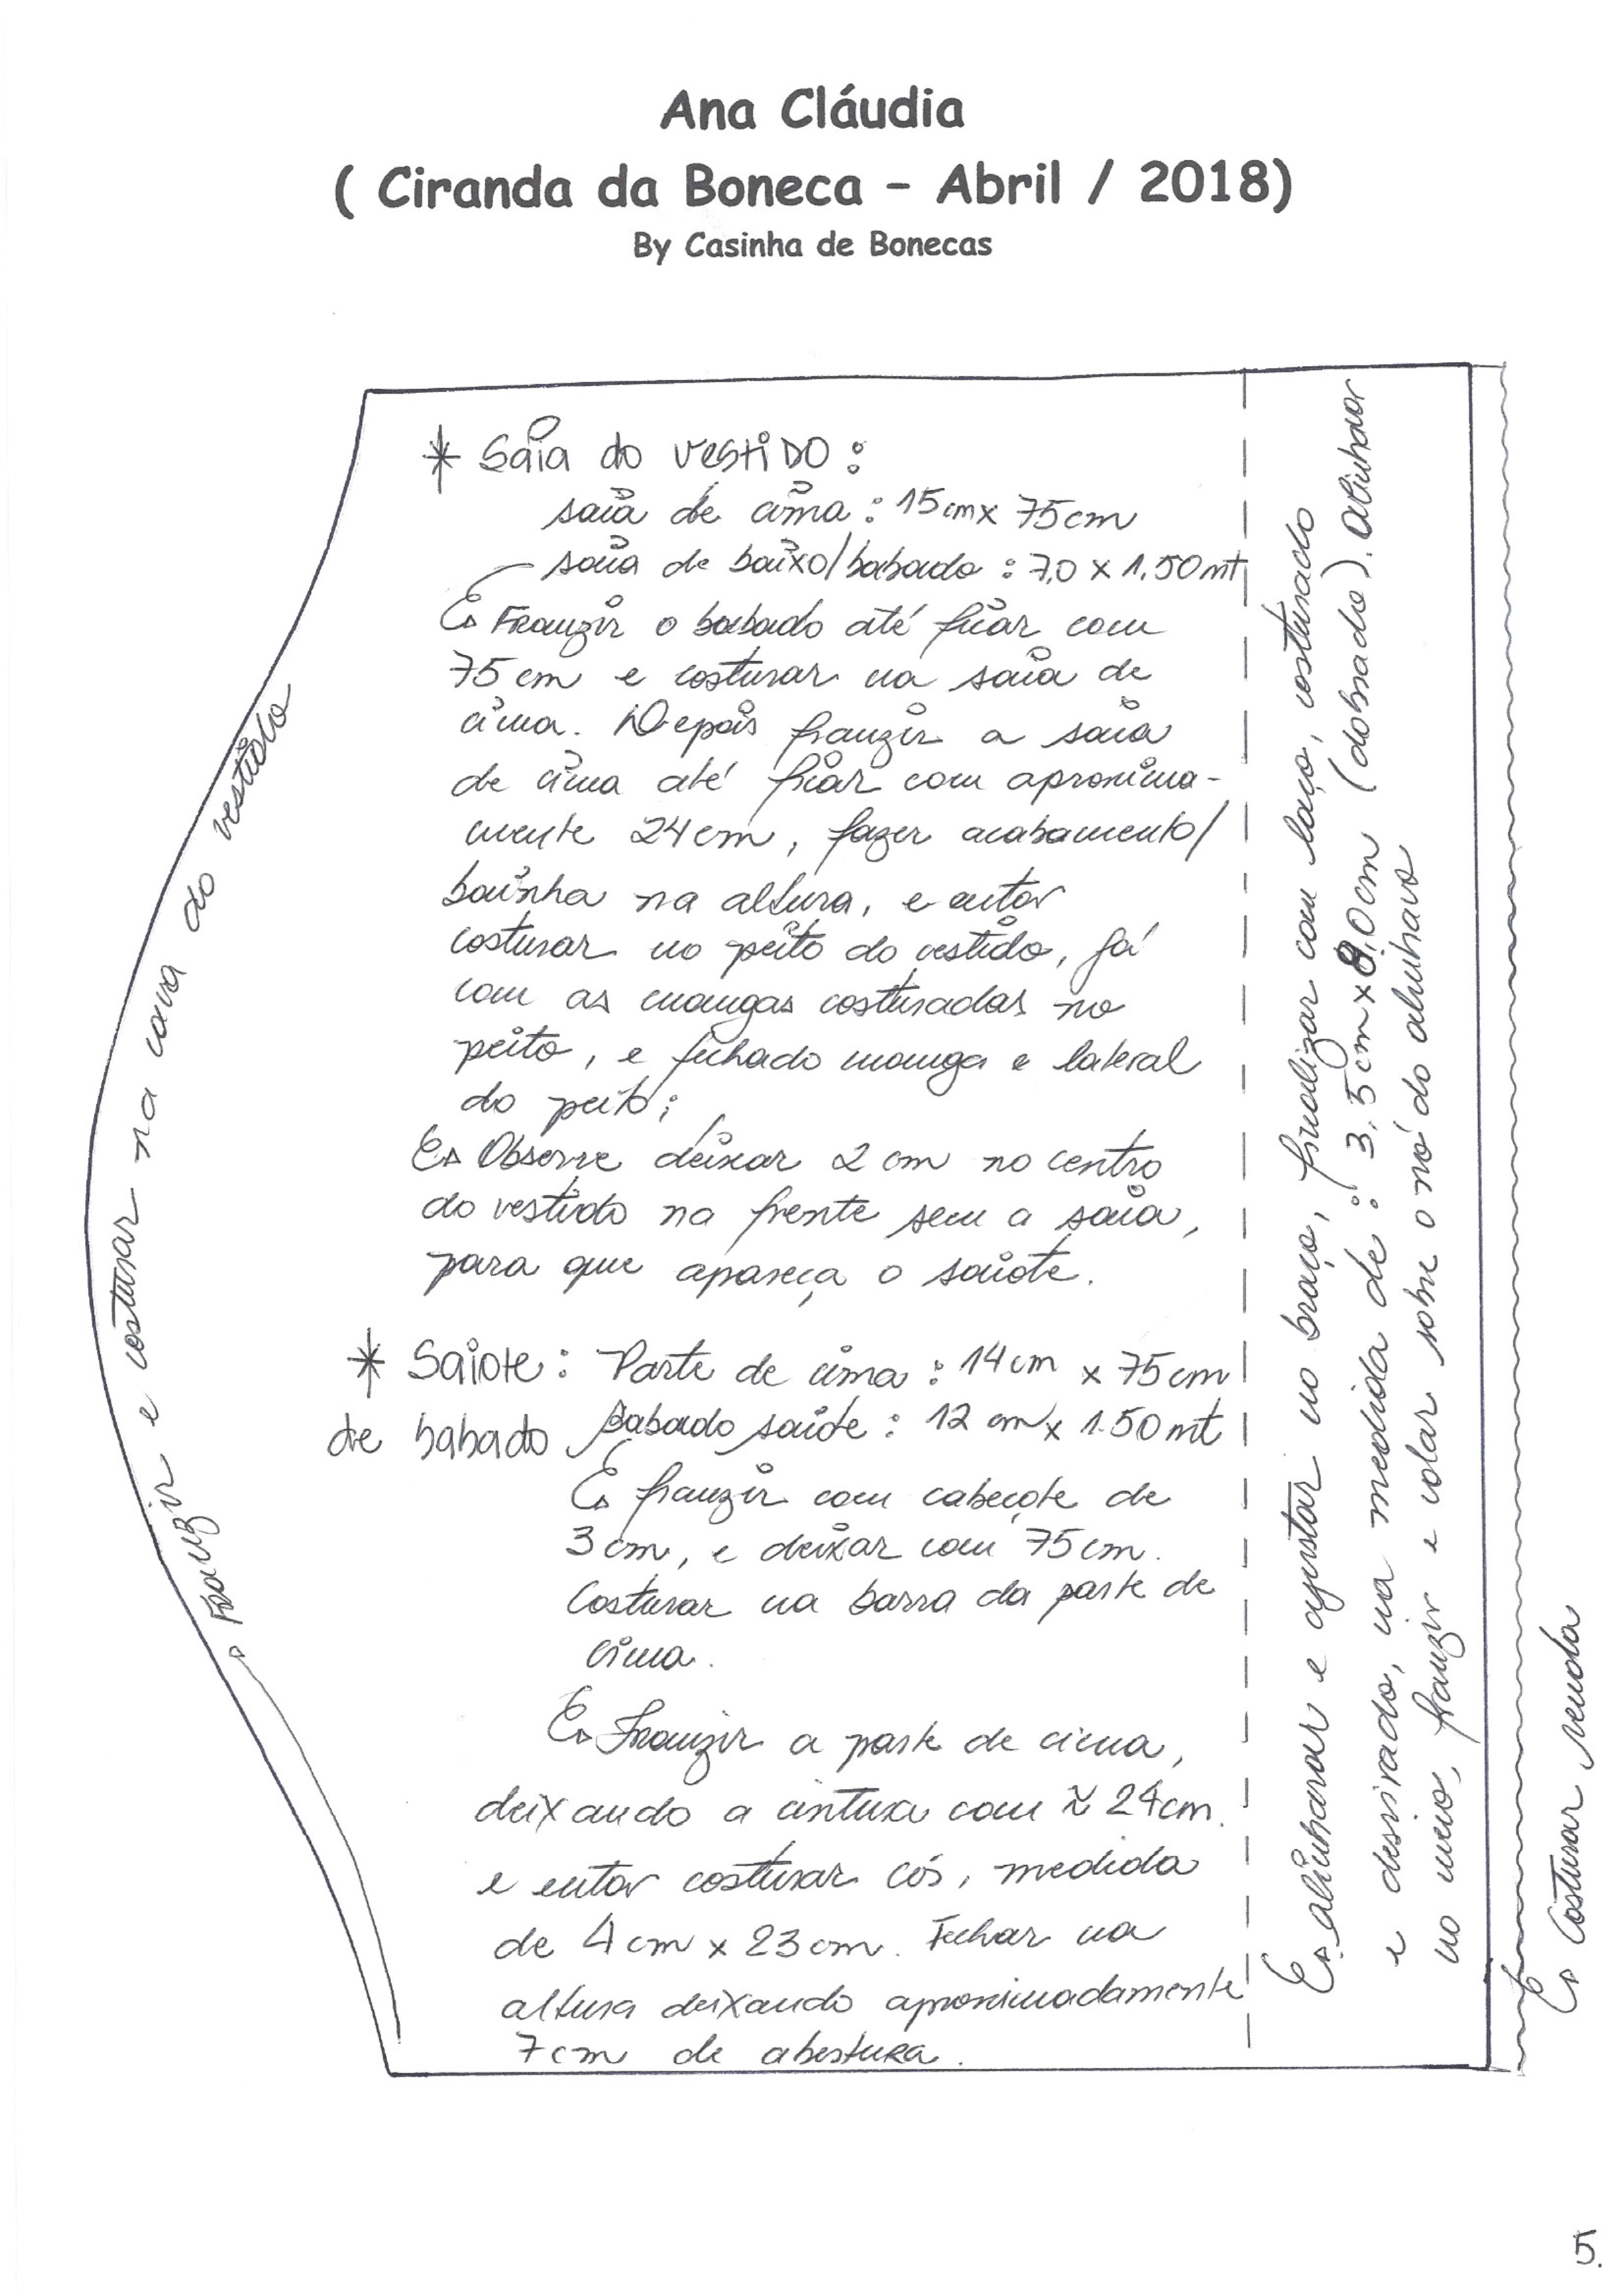 Ana Cláudia
( Ciranda da Boneca - Abril / 2018)
By Casinha de Bonecas
* Saia do vestido :
saia de cima : 15cm x 75cm
saia de baixo/babado : 7,0 x 1,50mt
Franzir o babado até ficar com
75 cm e costurar na saia de
cima. Depois franzir a saia
de cima até ficar com aproxima-
mente 24cm, fazer acabamento/
bainha na altura, e entar
costurar no peito do vestido, já
com as mangas costuradas no
peito, e fechado manga e lateral
do peito;
Observe deixar 2 cm no centro
do vestido na frente sem a saia,
para que apareça o saiote.
* Saiote : Parte de cima : 14cm x 75cm
de babado Babado saiote : 12 cm x 1.50 mt
franzir com cabeçote de
3cm, e deixar com 75cm.
Costurar na barra da parte de
cima.
Franzir a parte de cima,
deixando a cintura com ≈ 24cm.
e entar costurar cós, medida
de 4cm x 23cm. Fechar na
altura deixando aproximadamente
7cm de abertura.
Franzir e costurar na cava do vestido
alinhavar e ajustar no braço, finalizar com laço, costurado
e desvirado, na medida de : 3,5cm x 8,0cm (dobrado). alinhavar
no meio, franzir e colar sobre o nó do alinhavo
Costurar renda
5.